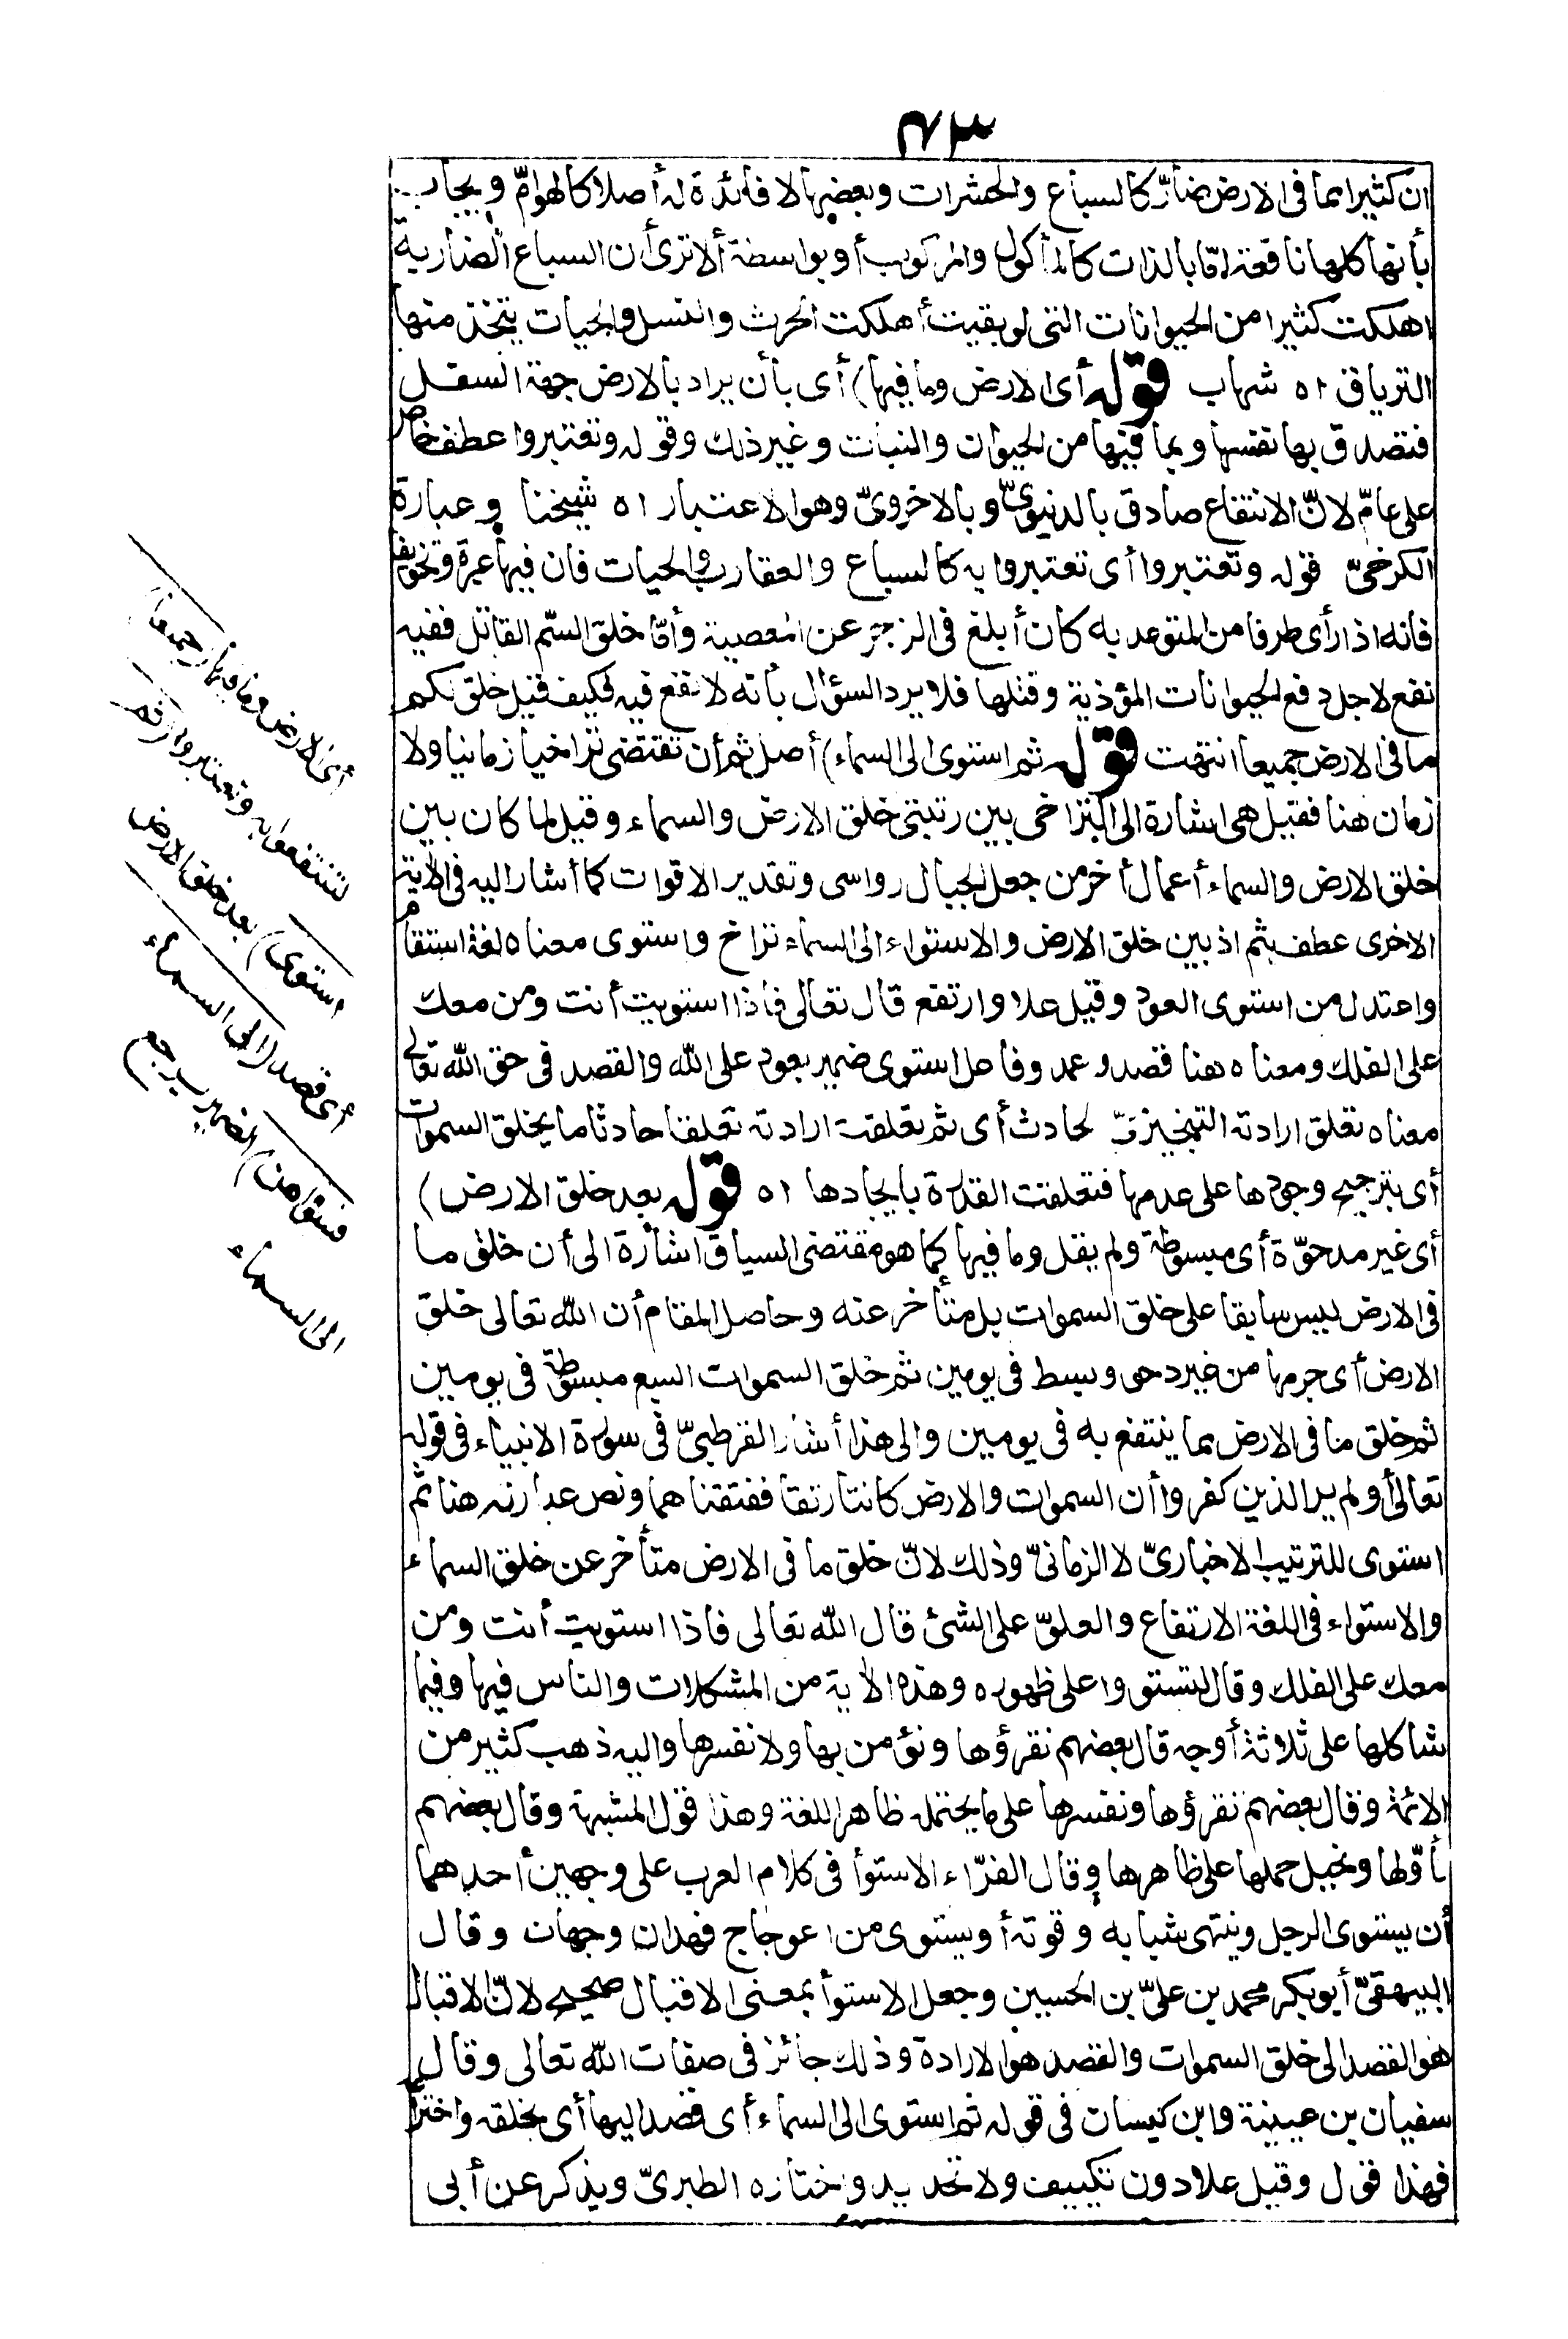 ٤٣
ان كثيرا مما فى الارض ضارّ كالسباع والحشرات وبعضها لا فائدة له أصلا كالهوامّ ويجاب
بأنها كلها نافعة امّا بالذات كالمأكول والمركوب أو بواسطة ألا ترى أن السباع الضارية
اهلكت كثيرا من الحيوانات التى لو بقيت أهلكت الحرث والنسل والحيات يتخذ منها
الترياق اه شهاب قوله أى الارض وما فيها) أى بأن يراد بالارض جهة السفل
فتصدق بها نفسها وبما فيها من الحيوان والنبات وغير ذلك وقوله وتعتبروا عطف خاص
على عامّ لانّ الانتفاع صادق بالدنيوىّ وبالاخروىّ وهو الاعتبار اه شيخنا وعبارة
الكرخىّ قوله وتعتبروا أى تعتبروا به كالسباع والعقارب والحيات فان فيها عبرة وتخويفا
فانه اذا رأى طرفا من المتوعد به كان أبلغ فى الزجر عن المعصية وأمّا خلق السّم القاتل ففيه
نفع لاجل دفع الحيوانات المؤذية وقتلها فلا يرد السؤال بأنه لا نفع فيه فكيف قيل خلق لكم
ما فى الارض جميعا انتهت قوله ثم استوى الى السماء) أصل ثم أن تقتضى تراخيا زمانيا ولا
زمان هنا فقيل هى اشارة الى التراخى بين رتبتى خلق الارض والسماء وقيل لما كان بين
خلق الارض والسماء أعمال أخر من جعل الجبال رواسى وتقدير الاقوات كما أشار اليه فى الآية
الاخرى عطف بثم اذ بين خلق الارض والاستواء الى السماء تراخ واستوى معناه لغة استقام
واعتدل من استوى العود وقيل علا وارتفع قال تعالى فاذا استويت أنت ومن معك
على الفلك ومعناه هنا قصد وعمد وفاعل استوى ضمير يعود على الله والقصد فى حق الله تعالى
معناه تعلق ارادته التنجيزىّ الحادث أى ثم تعلقت ارادته تعلقا حادثا ما بخلق السموات
أى بترجيح وجودها على عدمها فتعلقت القدرة بايجادها اه قوله بعد خلق الارض)
أى غير مدحوّة أى مبسوطة ولم يقل وما فيها كما هو مقتضى السياق اشارة الى أن خلق ما
فى الارض ليس سابقا على خلق السموات بل متأخر عنه وحاصل المقام أن الله تعالى خلق
الارض أى جرمها من غير دحى وبسط فى يومين ثم خلق السموات السبع مبسوطة فى يومين
ثم خلق ما فى الارض مما ينتفع به فى يومين والى هذا أشار القرطبىّ فى سورة الانبياء فى قوله
تعالى أولم ير الذين كفروا أن السموات والارض كانتا رتقا ففتقناهما ونص عبارته هنا ثم
استوى للترتيب الاخبارىّ لا الزمانىّ وذلك لانّ خلق ما فى الارض متأخر عن خلق السماء
والاستواء فى اللغة الارتفاع والعلوّ على الشئ قال الله تعالى فاذا استويت أنت ومن
معك على الفلك وقال لتستووا على ظهوره وهذه الآية من المشكلات والناس فيها وفيما
شاكلها على ثلاثة أوجه قال بعضهم نقرؤها ونؤمن بها ولا نفسرها واليه ذهب كثير من
الائمة وقال بعضهم نقرؤها ونفسرها على ما يحتمله ظاهر اللغة وهذا قول المشبهة وقال بعضهم
نأوّلها ونحيل حملها على ظاهرها وقال الفرّاء الاستوأ فى كلام العرب على وجهين أحدهما
أن يستوى الرجل وينتهى شبابه وقوته أو يستوى من اعوجاج فهذان وجهان وقال
البيهقىّ أبو بكر محمد بن علىّ بن الحسين وجعل الاستوأ بمعنى الاقبال صحيح لانّ الاقبال
هو القصد الى خلق السموات والقصد هو الارادة وذلك جائز فى صفات الله تعالى وقال
سفيان بن عيينة وابن كيسان فى قوله ثم استوى الى السماء أى قصد اليها أى بخلقه واخترا
فهذا قول وقيل علا دون تكييف ولا تحديد واختاره الطبرىّ ويذكر عن أبى
أى الارض وما فيها (جميعا)
لتنتفعوا به وتعتبروا (ثم
استوى) بعد خلق الارض
أى قصد (الى السماء
فسوّاهن) الضمير يرجع
الى السماء